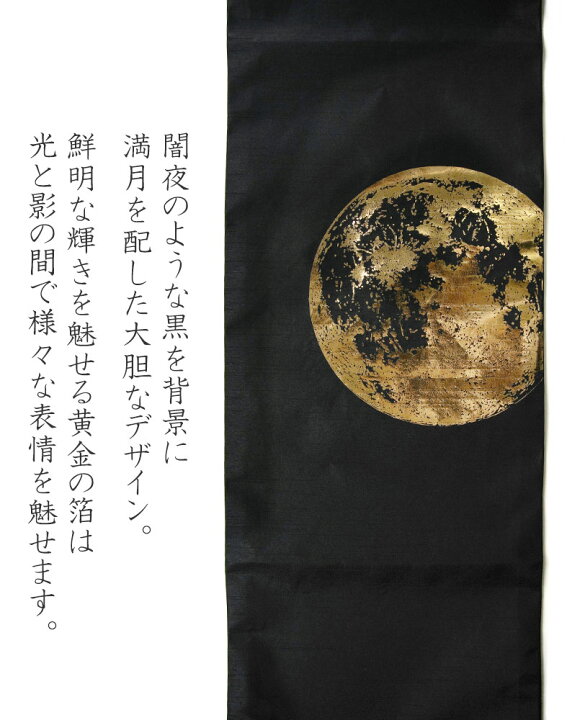 闇夜のような黒を背景に
満月を配した大胆なデザイン。
鮮明な輝きを魅せる黄金の箔は
光と影の間で様々な表情を魅せます。